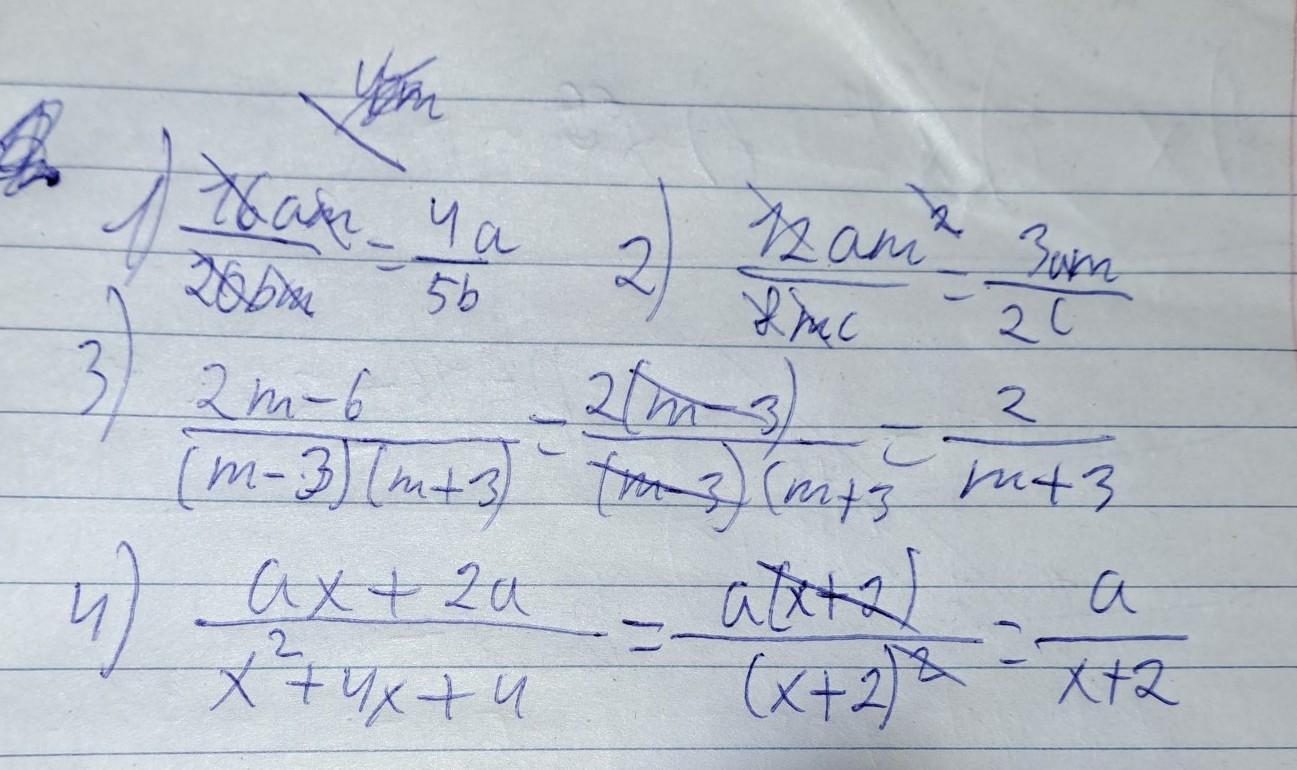 1) 16am/20bm = 4a/5b 2) 12am²/8mc = 3am/2c
3) 2m-6/(m-3)(m+3) = 2(m-3)/(m-3)(m+3 = 2/m+3
4) ax+2a/x²+4x+4 = a(x+2)/(x+2)² = a/x+2